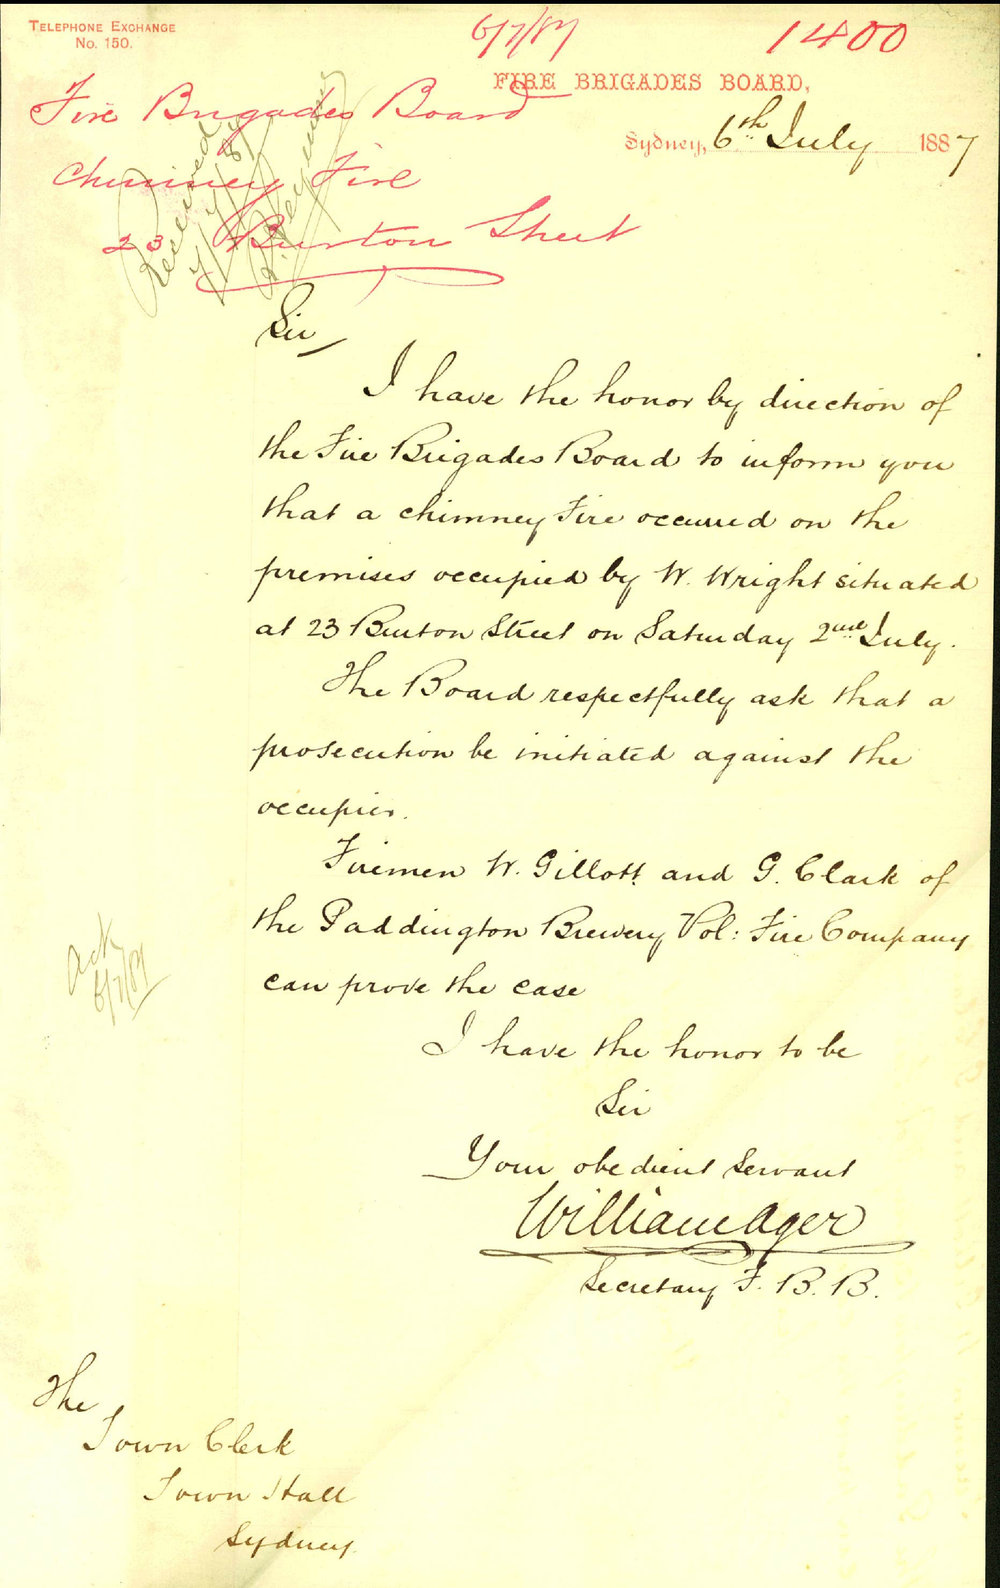 TELEPHONE EXCHANGE
No. 150.
6/7/87
1400
FIRE BRIGADES BOARD,
Sydney, 6th July 1887
Fire Brigades Board
Chimney Fire
23 Burton Street
Received
7/7/87
Sir,
I have the honor by direction of
the Fire Brigades Board to inform you
that a chimney Fire occurred on the
premises occupied by W. Wright situated
at 23 Burton Street on Saturday 2nd July.
The Board respectfully ask that a
prosecution be initiated against the
occupier.
Firemen W. Gillott and G. Clark of
the Paddington Brewery Vol: Fire Company
can prove the case
Ack
6/7/87
I have the honor to be
Sir
Your obedient servant
William Ager
Secretary F. B. B.
The
Town Clerk
Town Hall
Sydney.